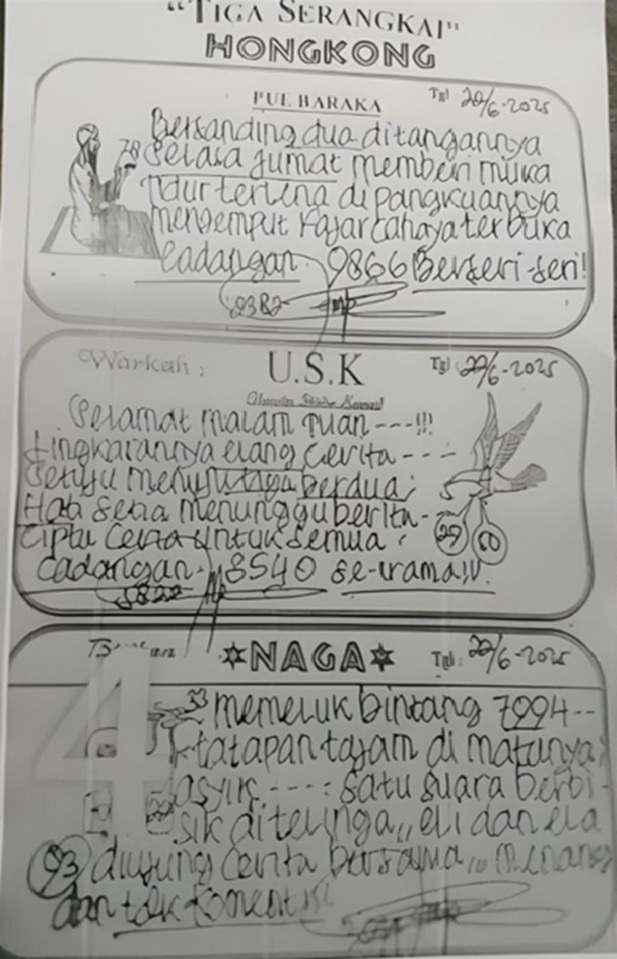 "TIGA SERANGKAI"
HONGKONG
PUE BARAKA
Tgl 20/6-2025
Bersanding dua ditangannya
78 Selasa Jumat memberi muka
Tidur terlena di pangkuannya
menjemput Fajar cahaya terbuka
Cadangan. 9866 Berseri-seri!
0382
Warkah :
U.S.K
Tgl 20/6-2025
Selamat malam Tuan ---!!!
Lingkarannya elang cerita ---
Setuju berdua;
Hati setia menunggu berita-
Cipta untuk semua.
29 60
Cadangan. 8540 se-irama!!.
5822
NAGA
Tgl: 20/6-2025
33 memeluk bintang 7994--
tatapan tajam di matanya;
asyik ----: satu suara berbi-
sik ditelinga,, eli dan ela
93 diujung cerita bersama,, menang
dan
4